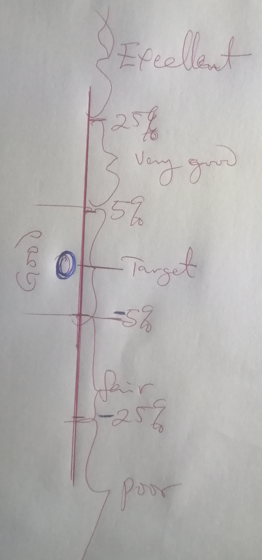 Excellent
25%
Very good
5%
Good
0
Target
-5%
fair
-25%
poor